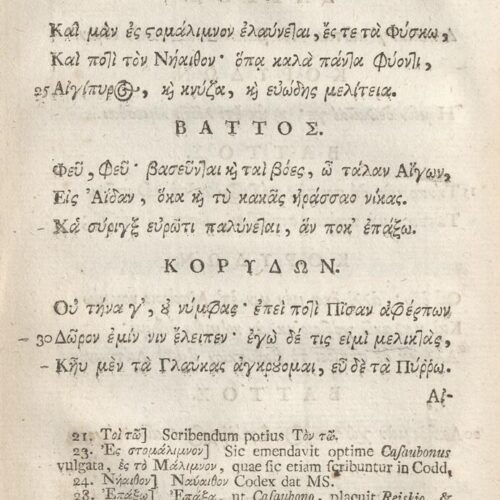 Καὶ μὰν ἐς στομάλιμνον ἐλαύνεται, ἔς τε τὰ Φύσκω,
Καὶ ποτὶ τὸν Νήαιθον· ὅπα καλὰ πάντα φύοντι,
25 Αἰγίπυρος, καὶ κνύζα, καὶ εὐώδης μελίτεια.
ΒΑΤΤΟΣ.
Φεῦ, φεῦ· βασεῦνται καὶ ταὶ βόες, ὦ τάλαν Αἴγων,
Εἰς Ἀΐδαν, ὅκα καὶ τὺ κακᾶς ἠράσσαο νίκας.
- Χἁ σύριγξ εὐρῶτι παλύνεται, ἅν ποκ' ἐπάξω.
ΚΟΡΥΔΩΝ.
Οὐ τήνα γ', οὐ νύμφας· ἐπεὶ ποτὶ Πῖσαν ἀφέρπων
- 30 Δῶρον ἐμίν νιν ἔλειπεν· ἐγὼ δέ τις εἰμὶ μελικτάς,
- Κῆυ μὲν τὰ Γλαύκας ἀγκρούομαι, εὖ δὲ τὰ Πύῤῥω.
Αἰ-
21. Τοὶ τῶ] Scribendum potius Τὸν τῶ.
23. Ἐς στομάλιμνον] Sic emendavit optime Casaubonus
vulgata, ἐς τὸ Μάλιμνον, quae sic etiam scribuntur in Codd.
24. Νήαιθον] Ναύαιθον Codex dat MS.
28. Ἐπάξω] Ἐπάξα, ut Casaubono, placuit Reiskio, &